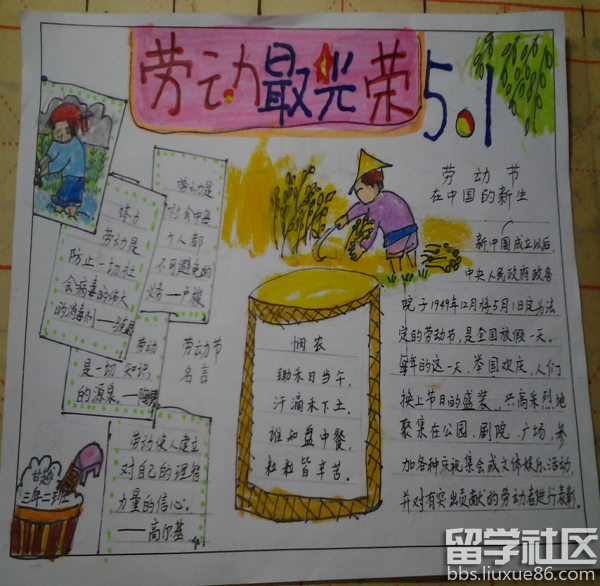 劳动最光荣 5.1
劳动是
社会中每
个人都
不可避免的
义务——卢梭
体力
劳动是
防止一切社
会病毒的伟大
的消毒剂——
劳动
是一切知识
的源泉。——陶铸
劳动节
名言
劳动使人建立
对自己的理智
力量的信心。
——高尔基
三年二班
悯农
锄禾日当午,
汗滴禾下土。
谁知盘中餐,
粒粒皆辛苦。
劳动节
在中国的新生
新中国成立以后,
中央人民政府政务
院于1949年12月将5月1日定为法
定的劳动节,是全国放假一天。
每年的这一天,举国欢庆,人们
换上节日的盛装,兴高采烈地
聚集在公园、剧院、广场,参
加各种庆祝集会或文体娱乐活动,
并对有突出贡献的劳动者进行表彰。
留学社区
bbs.liuxue86.com